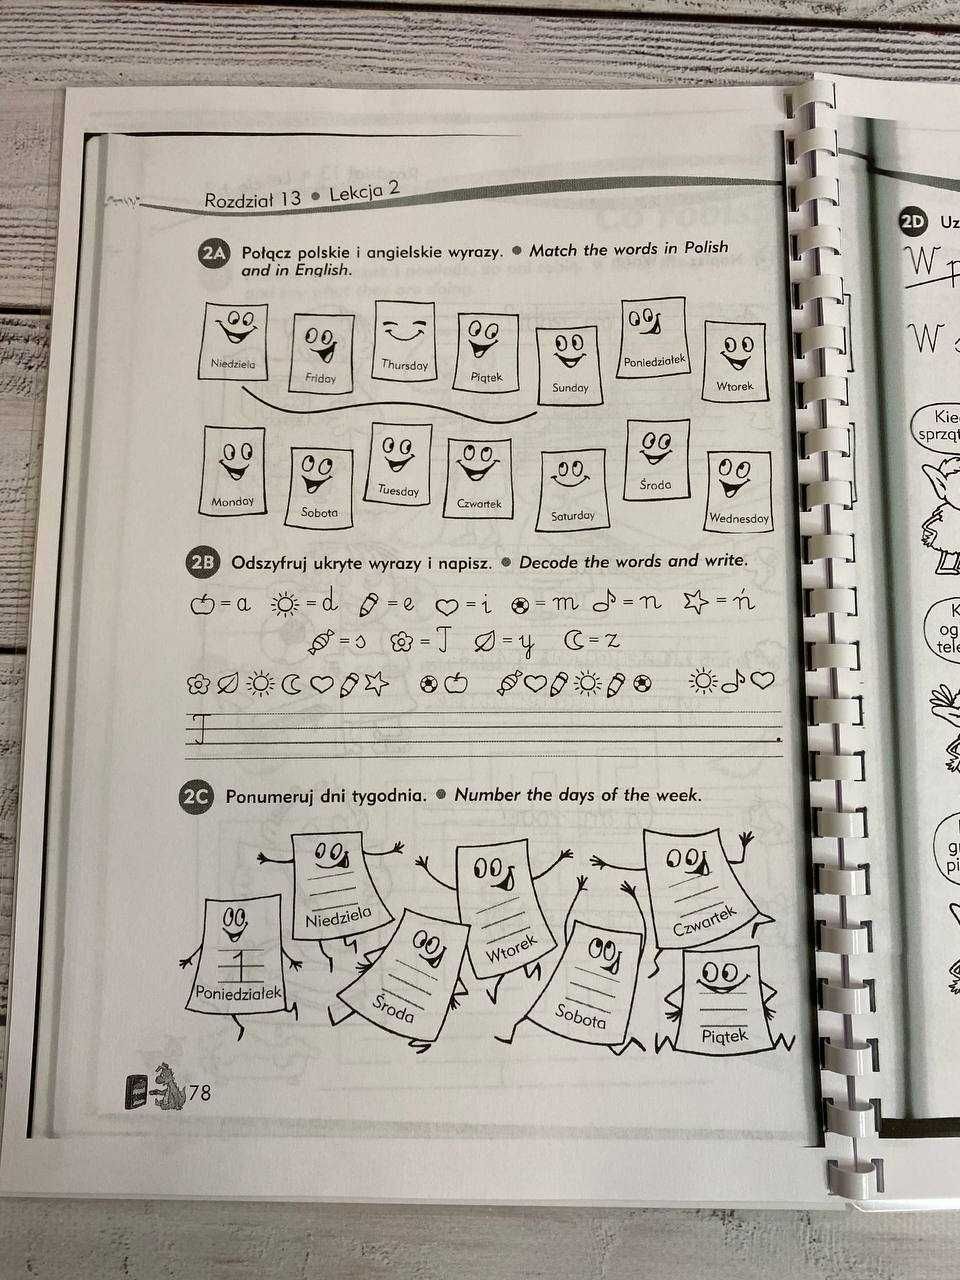 Rozdział 13 • Lekcja 2
2A Połącz polskie i angielskie wyrazy. • Match the words in Polish
and in English.
Niedziela
Friday
Thursday
Piątek
Sunday
Poniedziałek
Wtorek
Monday
Sobota
Tuesday
Czwartek
Saturday
Środa
Wednesday
2B Odszyfruj ukryte wyrazy i napisz. • Decode the words and write.
= a = d = e = i = m = n = ń
= s = T = y = z
T .
2C Ponumeruj dni tygodnia. • Number the days of the week.
Niedziela
Wtorek
Czwartek
1
Poniedziałek
Środa
Sobota
Piątek
78
2D Uz
W
W
Kie
sprząt
K
og
tele
g
pi